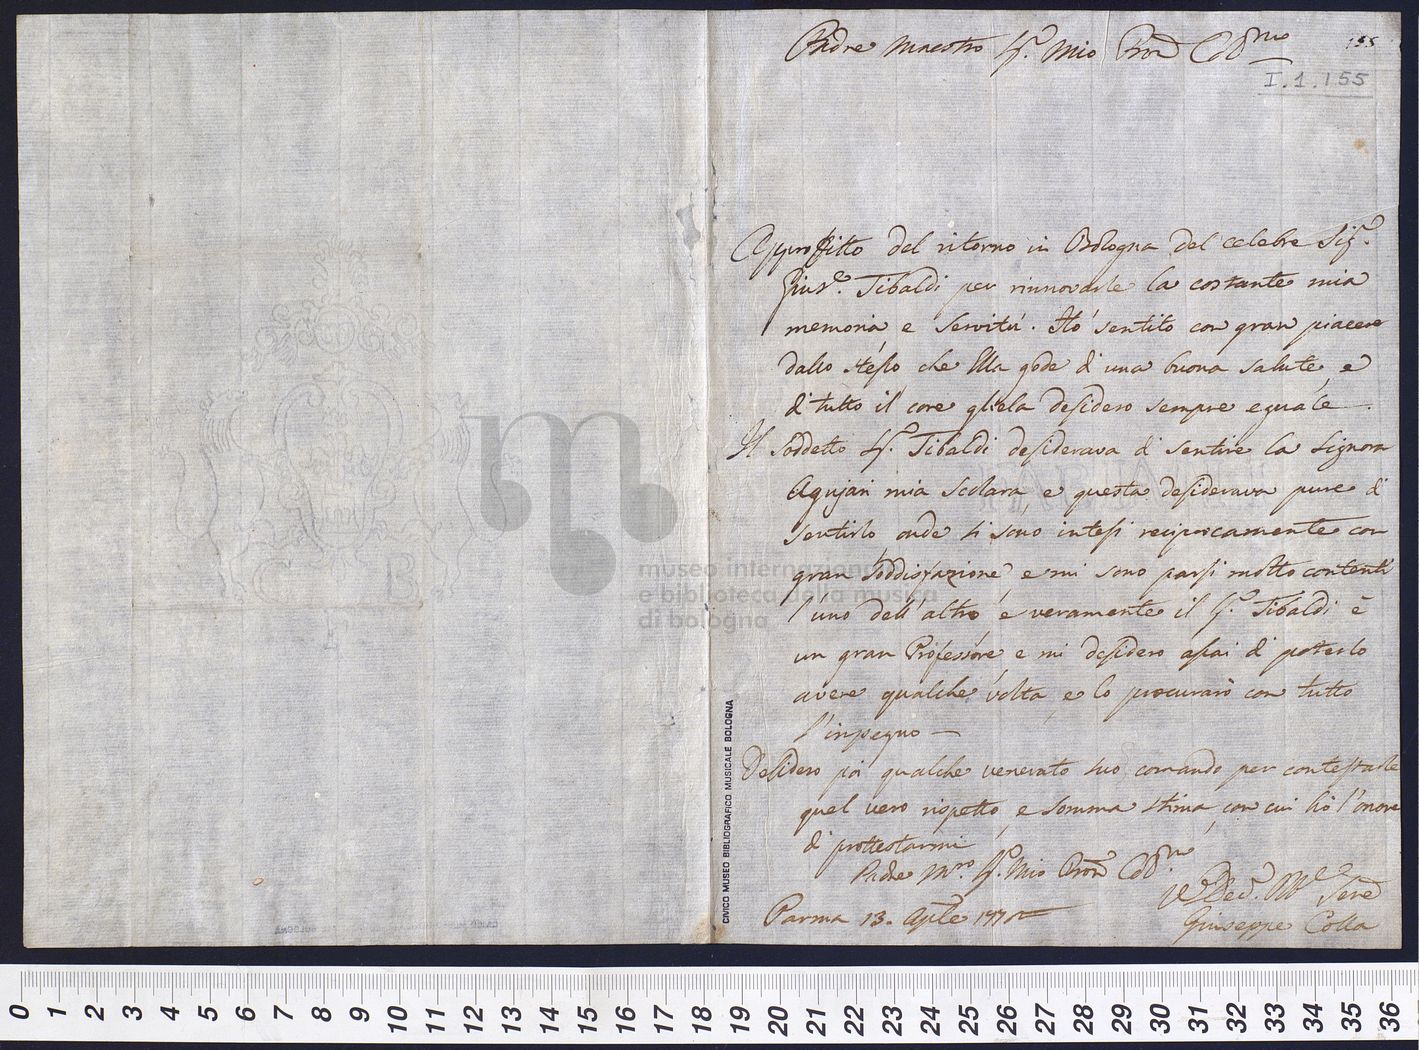 Padre Maestro Sig.r Mio Pron Colmo
155
I.1.155
Approffitto del ritorno in Bologna del celebre Sig.r
Gius.e Tibaldi per rinnovarle la costante mia
memoria e servitù. Hò sentito con gran piacere
dallo stesso che Ella gode di una buona salute, e
di tutto il core gliela desidero sempre eguale.
Il soddetto Sr. Tibaldi desiderava di sentire la Signora
Agujari mia scolara, e questa desiderava pure di
sentirlo onde si sono intesi reciprocamente con
gran soddisfazione e mi sono parsi molto contenti
l'uno dell'altro, e veramente il Sr. Tibaldi è
un gran Professore e mi desidero assai di poterlo
avere qualche volta, e lo procurarò con tutto
l'inpegno —
Desidero poi qualche venerato suo comando per contestarle
quel vero rispetto, e somma stima, con cui hò l'onore
di prottestarmi
Padre Mro. Sr. Mio Pron Colmo
Parma 13. Aple 177
Giuseppe Colla
CIVICO MUSEO BIBLIOGRAFICO MUSICALE BOLOGNA
museo internazionale
e biblioteca della musica
di bologna
0 1 2 3 4 5 6 7 8 9 10 11 12 13 14 15 16 17 18 19 20 21 22 23 24 25 26 27 28 29 30 31 32 33 34 35 36